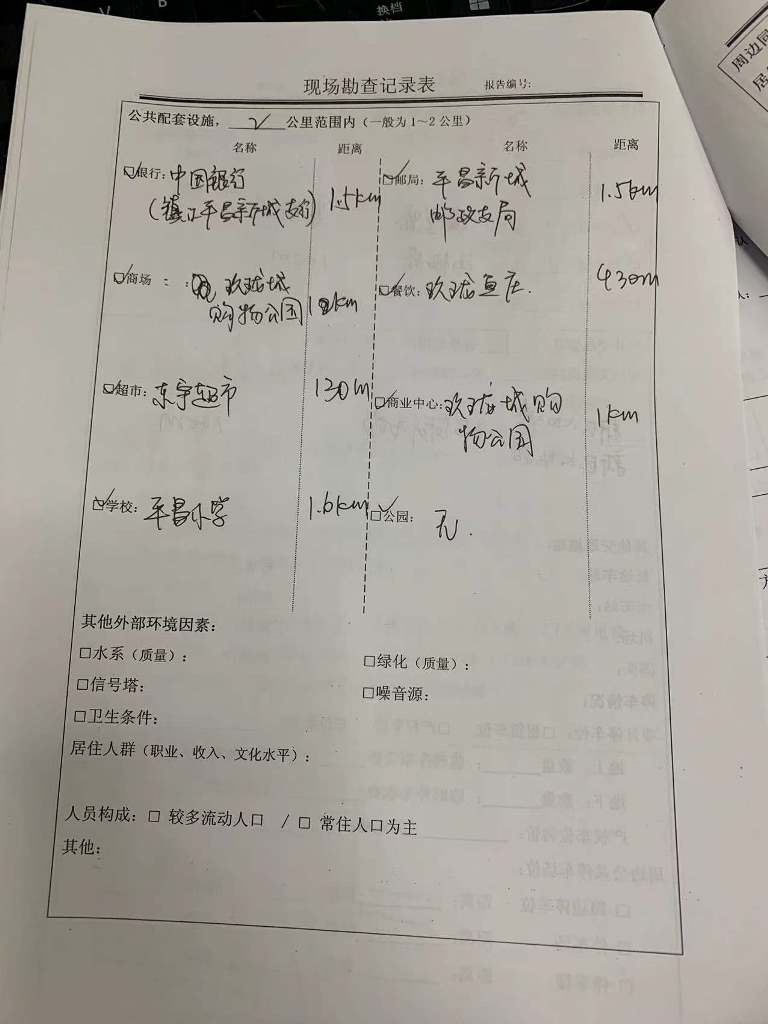 换档
现场勘查记录表
报告编号:
周边同
居
公共配套设施， 2 公里范围内（一般为1～2公里）
名称 距离 名称 距离
☑银行：中国银行 1.5km ☑邮局：平昌新城 1.5km
（镇江平昌新城支行） 邮政支局
☑商场：：玖珑城 1km ☑餐饮：玖珑鱼庄. 430m
购物公园
☑超市：东宇超市 130m ☑商业中心：玖珑城购 1km
物公园
☑学校：平昌小学 1.6km ☑公园：无.
其他外部环境因素：
□水系（质量）： □绿化（质量）：
□信号塔： □噪音源：
□卫生条件：
居住人群（职业、收入、文化水平）：
人员构成：□ 较多流动人口 / □ 常住人口为主
其他：